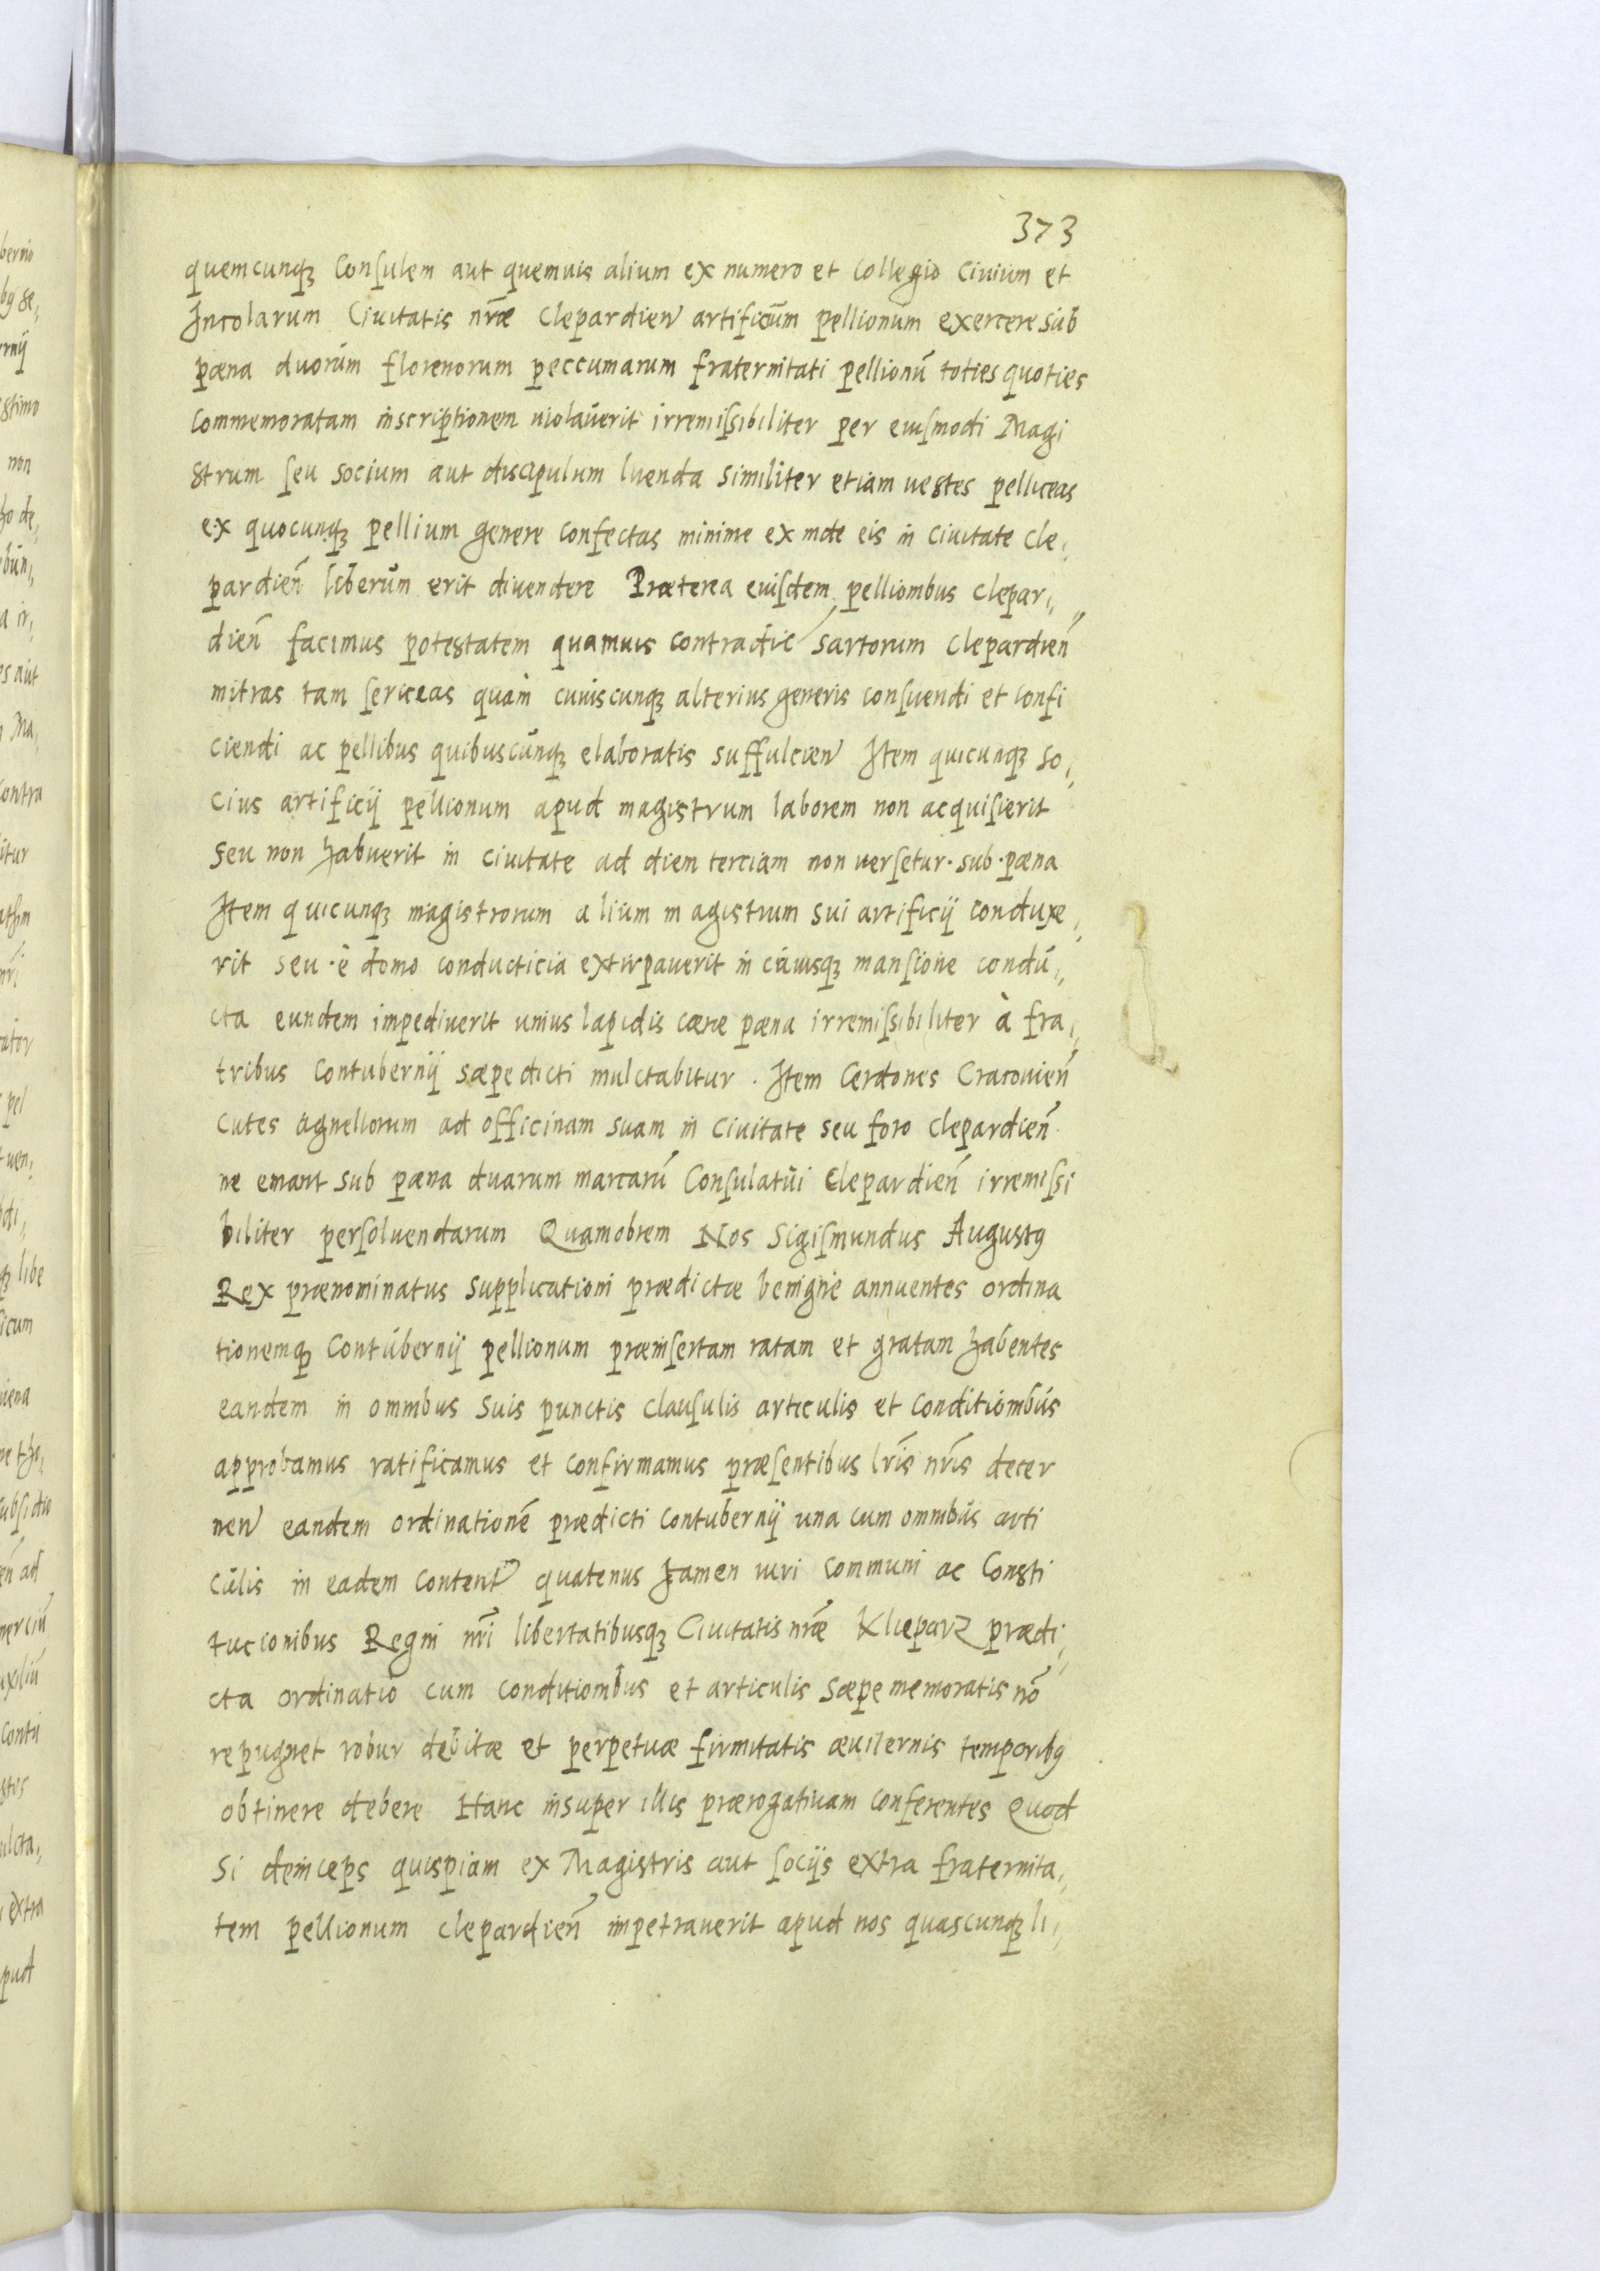 373
quemcunqꝫ Consulem aut quemuis alium ex numero et Collegio Ciuium et
Incolarum Ciuitatis nr̃æ Clepardien̄ artificũm pellionum exercere sub
pæna duorum florenorum peccumarum fraternitati pellionũ toties quoties
Commemoratam inscriptionem uiolauerit irremissibiliter per eiusmodi Magi
strum seu socium aut discipulum luenda similiter etiam uestes pelliceas
ex quocunqꝫ pellium genere confectas minime ex mde eis in Ciuitate Cle,,
pardien̄ liberum erit diuendere Præterea eiusdem pellionibus Clepar,,
dien̄ facimus potestatem quamuis contradic̄ sartorum Clepardien̄
mitras tam sericeas quàm cuiuscunqꝫ alterius generis consuendi et confi
ciendi ac pellibus quibuscunqꝫ elaboratis suffulcien̄ Item quicunqꝫ so,,
cius artificij pellionum apud magistrum laborem non acquisierit
seu non habuerit in ciuitate ad diem terciam non uersetur · sub · pæna
Item quicunqꝫ magistrorum alium magistrum sui artificij conduxe,,
rit seu · è domo conducticia extirpauerit in cuiusqꝫ mansione condu,,
cta eundem impediuerit unius lapidis cæræ pæna irremissibiliter à fra,,
tribus Contubernij sæpedicti mulctabitur . Item Cerdones Cracouien̄
cutes agnellorum ad officinam suam in Ciuitate seu foro Clepardien̄
ne emant sub pæna duarum marcarũ Consulatui Clepardien̄ irremissi
biliter persoluendarum Quamobrem Nos Sigismundus Augustꝯ
Rex prænominatus supplicationi prædictæ benigne annuentes ordina
tionemqꝫ Contubernij pellionum præinsertam ratam et gratam habentes
eandem in omnibus suis punctis clausulis articulis et conditionibus
approbamus ratificamus et confirmamus præsentibus lr̃is nr̃is decer
nen̄ eandem ordinationẽ prædicti contubernij una cum omnibus arti
culis in eadem content̄ quatenus tamen iuri communi ac Consti
tucionibus Regni nr̃i libertatibusqꝫ Ciuitatis nr̃æ Klieparz prædi,,
cta ordinatio cum conditionibus et articulis sæpe memoratis nõ
repugnet robur debitæ et perpetuæ firmitatis æuiternis temporibꝯ
obtinere debere Hanc insuper illis prærogatiuam conferentes Quod
si deinceps quispiam ex Magistris aut socijs extra fraternita,,
tem pellionum Clepardien̄ impetrauerit apud nos quascunqꝫ li,,